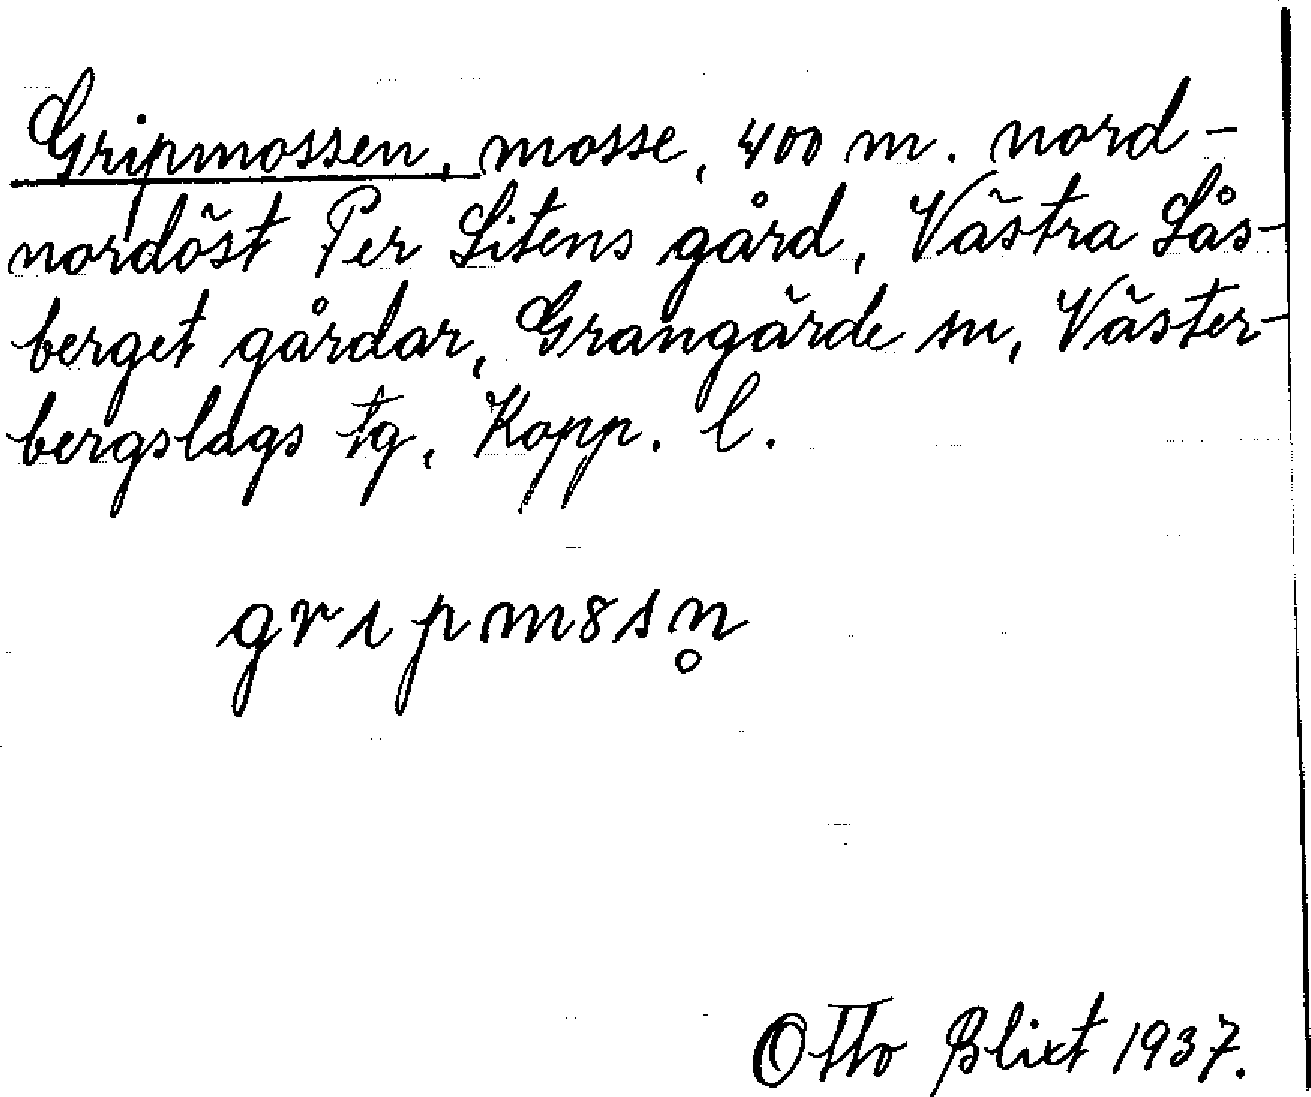 Gripmossen, mosse, 400 m. nord-
nordöst Per Litens gård, Västra Lås-
berget gårdar, Grangärde sn, Väster-
bergslags tg, Kopp. l.
grıpm8sn̥
Otto Blixt 1937.